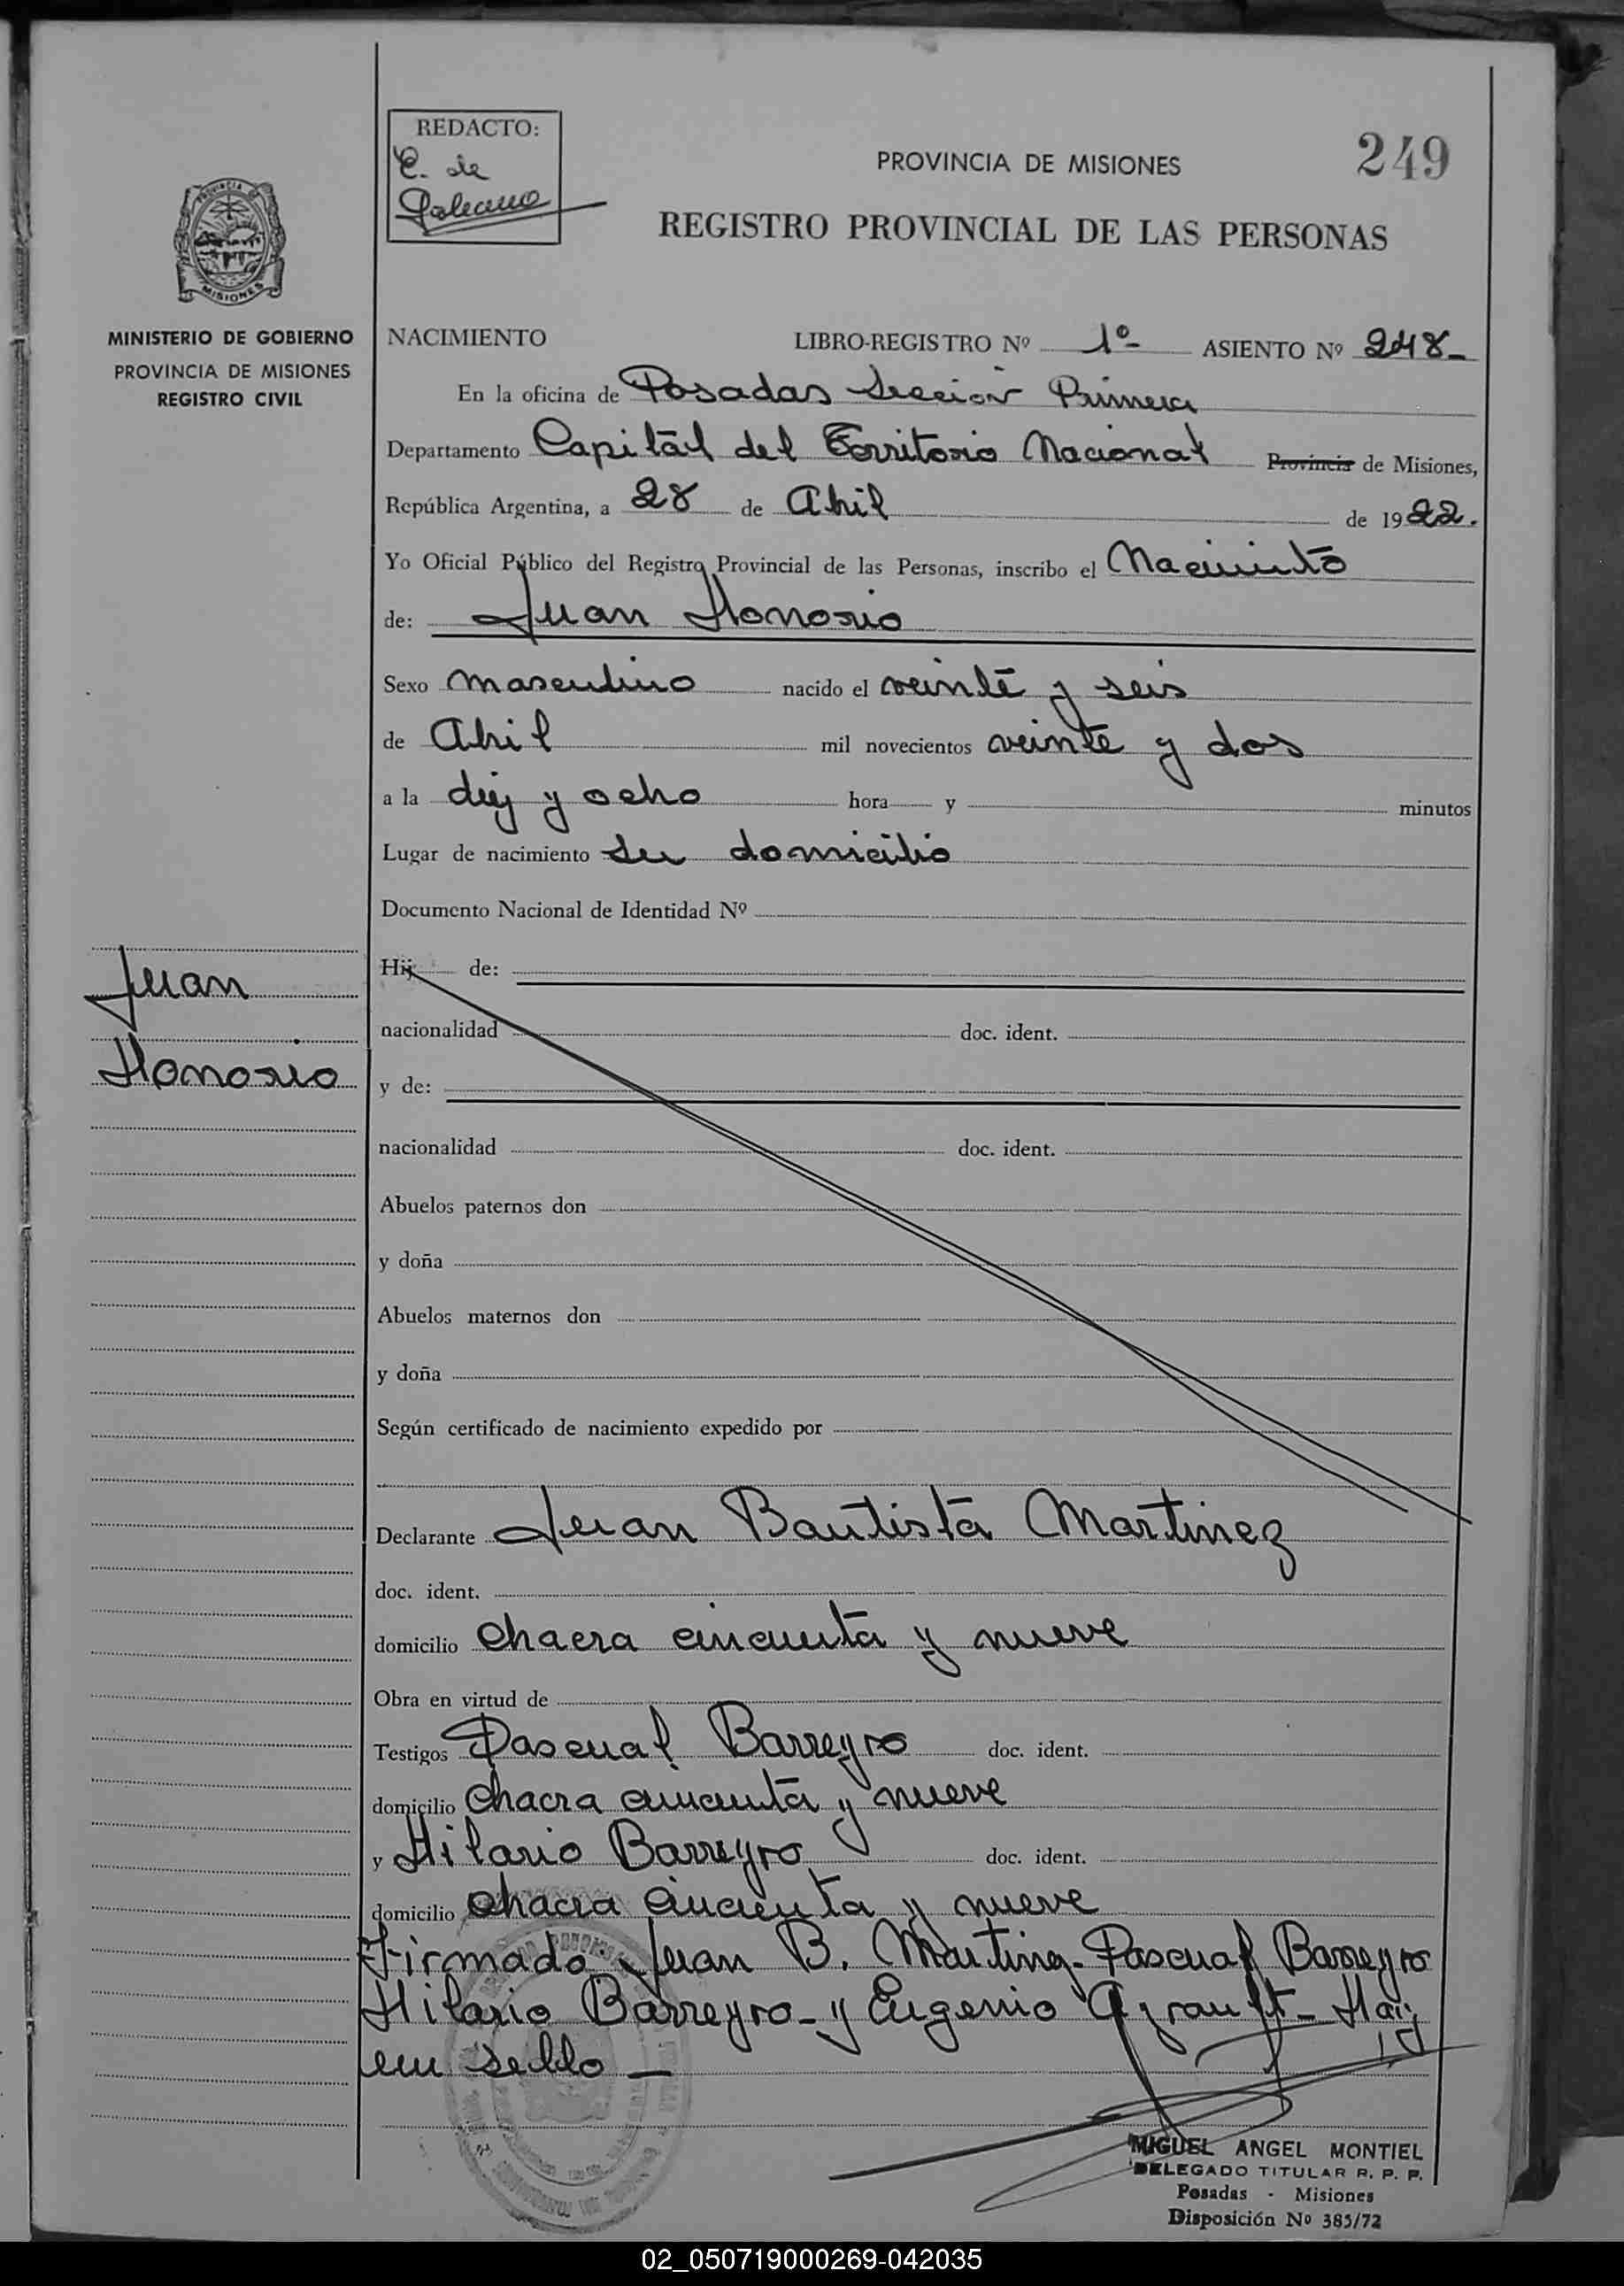 REDACTO:
C. de
Galeano
PROVINCIA DE MISIONES
249
REGISTRO PROVINCIAL DE LAS PERSONAS
PROVINCIA DE
MISIONES
MINISTERIO DE GOBIERNO
PROVINCIA DE MISIONES
REGISTRO CIVIL
NACIMIENTO LIBRO-REGISTRO Nº 1º- ASIENTO Nº 248-
En la oficina de Posadas Sección Primera
Departamento Capital del Territorio Nacional Provincia de Misiones,
República Argentina, a 28 de Abril de 1922.
Yo Oficial Público del Registro Provincial de las Personas, inscribo el Nacimiento
de: Juan Honorio
Sexo masculino nacido el veinte y seis
de Abril mil novecientos veinte y dos
a la diez y ocho hora y minutos
Lugar de nacimiento su domicilio
Documento Nacional de Identidad Nº
Hij de:
nacionalidad doc. ident.
y de:
nacionalidad doc. ident.
Abuelos paternos don
y doña
Abuelos maternos don
y doña
Según certificado de nacimiento expedido por
Juan
Honorio
Declarante Juan Bautista Martinez
doc. ident.
domicilio chacra cincuenta y nueve
Obra en virtud de
Testigos Pascual Barreyro doc. ident.
domicilio chacra cincuenta y nueve
y Hilario Barreyro doc. ident.
domicilio chacra cincuenta y nueve
Firmado: Juan B. Martinez- Pascual Barreyro
Hilario Barreyro- y Eugenio Ayrault- Hay
un sello —
MIGUEL ANGEL MONTIEL
DELEGADO TITULAR R. P. P.
Posadas - Misiones
Disposición Nº 385/72
02_050719000269-042035